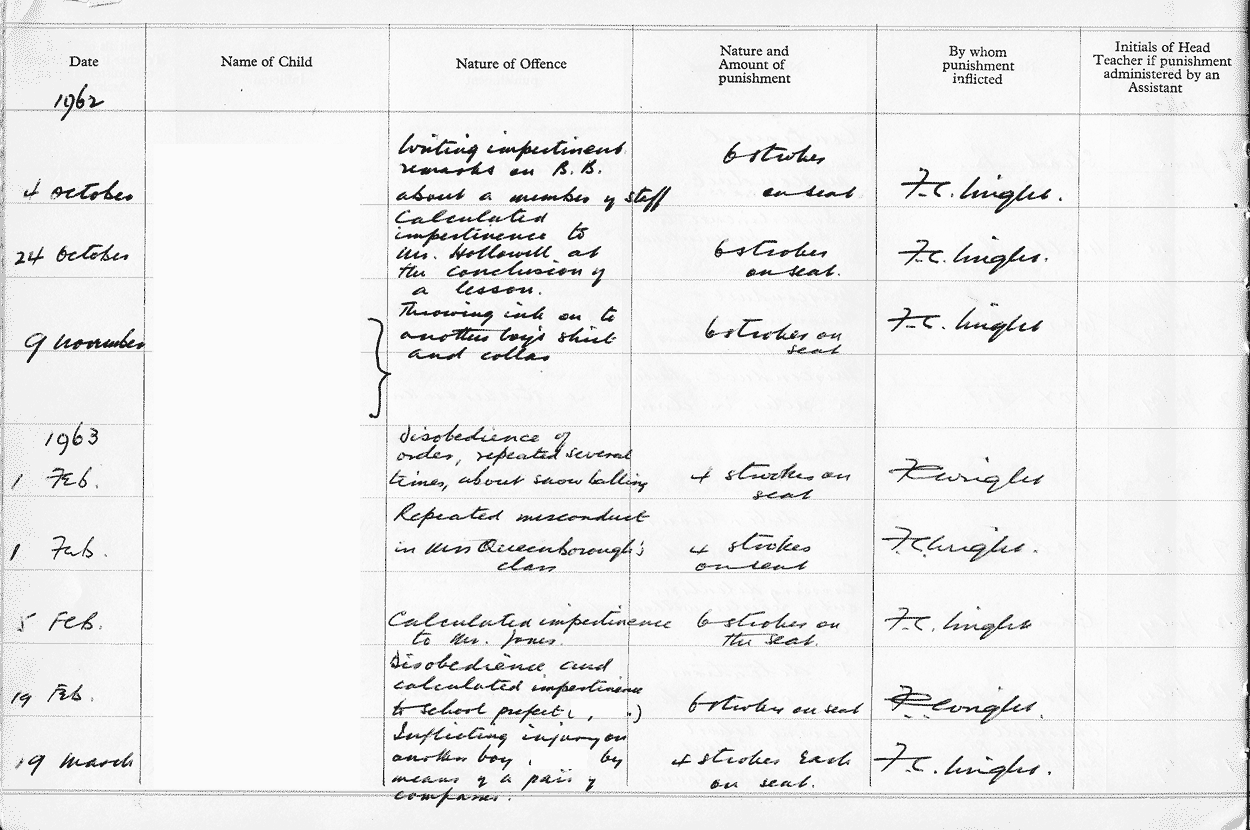 Date
Name of Child
Nature of Offence
Nature and
Amount of
punishment
By whom
punishment
inflicted
Initials of Head
Teacher if punishment
administered by an
Assistant
1962
4 October
Writing impertinent
remarks on B.B.
about a member of staff
6 strokes
on seat
F.C. Wright.
24 October
Calculated
impertinence to
Mr. Hollowell at
the conclusion of
a lesson.
6 strokes
on seat.
F.C. Wright.
9 November
Throwing ink on to
another boy's shirt
and collar
6 strokes on
seat
F.C. Wright
1963
1 Feb.
Disobedience of
order, repeated several
times, about snowballing
4 strokes on
seat
F.C. Wright
1 Feb.
Repeated misconduct
in Mrs Queenborough's
class
4 strokes
on seat
F.C. Wright.
5 Feb.
Calculated impertinence
to Mr. Jones.
6 strokes on
the seat.
F.C. Wright
19 Feb.
Disobedience and
calculated impertinence
to school prefect ( , .)
6 strokes on seat
F.C. Wright.
19 March
Inflicting injury on
another boy, by
means of a pair of
compasses.
4 strokes each
on seat.
F.C. Wright.